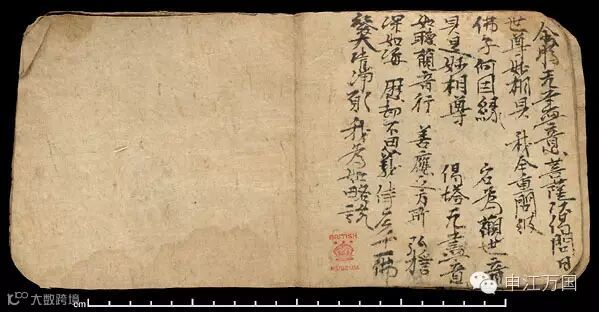 无盡意菩薩以偈問曰
世尊妙相具 我今重問彼
佛子何因緣 名為觀世音
具足妙相尊 偈塔无盡意
汝聽觀音行 善應諸方所 弘
深如海 歷劫不思義 侍多千 佛
發大清淨願 我為汝略說
BRITISH
MUSEUM
cm
大数跨境
申江万国